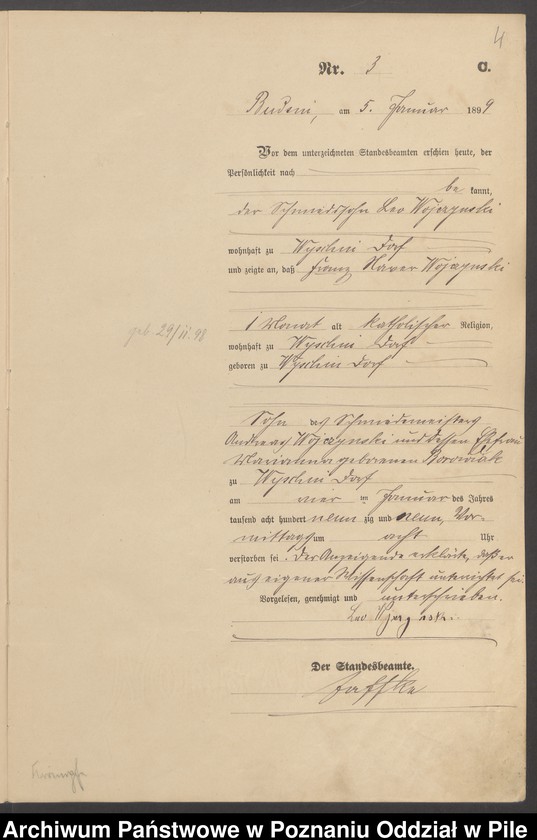 4
Nr. 3 C.
Budsin, am 5. Januar 1899
Vor dem unterzeichneten Standesbeamten erschien heute, der
Persönlichkeit nach
be kannt,
der Schmiedssohn Leo Wojczynski
wohnhaft zu Wyschin Dorf
und zeigte an, daß Franz Xaver Wojczynski
geb. 29/11.98
1 Monat alt katholischer Religion,
wohnhaft zu Wyschin Dorf
geboren zu Wyschin Dorf
Sohn des Schmiedemeisters
Andreas Wojczynski und dessen Ehefrau
Marianna geborenen Borowiak
zu Wyschin Dorf
am vier ten Januar des Jahres
tausend acht hundert neun zig und neun, Vor-
mittags um acht Uhr
verstorben sei. Der Anzeigende erklärte, daß er
aus eigener Wissenschaft unterrichtet sei.
Vorgelesen, genehmigt und unterschrieben.
Leo Wojczynski.
Der Standesbeamte.
Jaffke
Archiwum Państwowe w Poznaniu Oddział w Pile